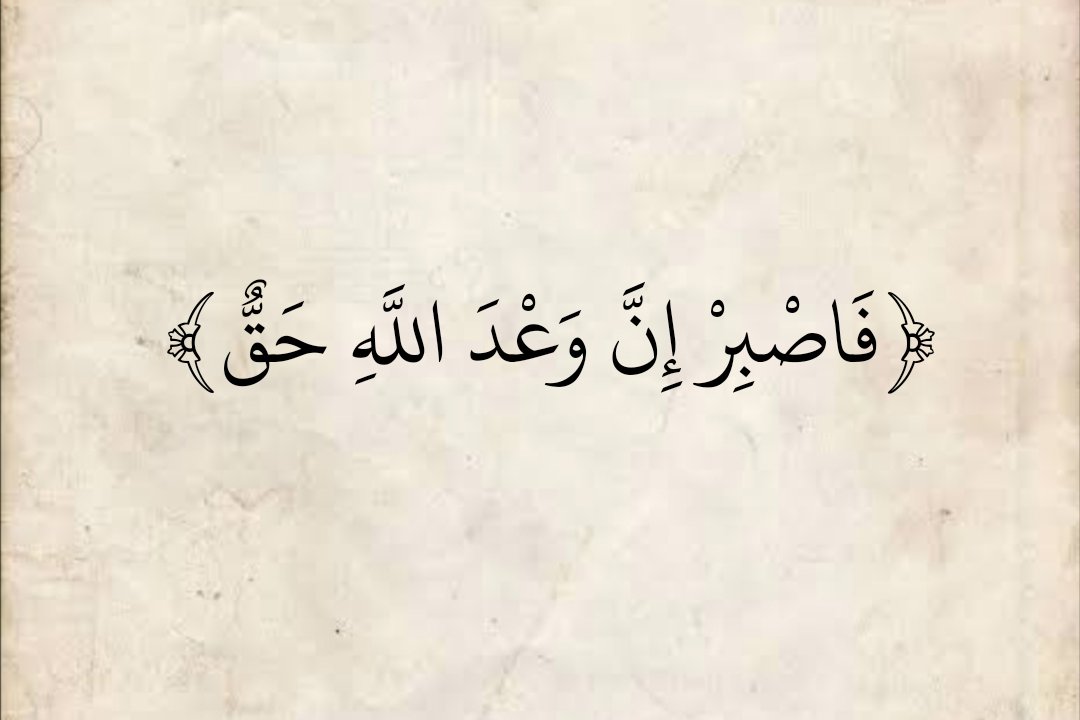 ﴿فَاصْبِرْ إِنَّ وَعْدَ اللَّهِ حَقٌّ﴾